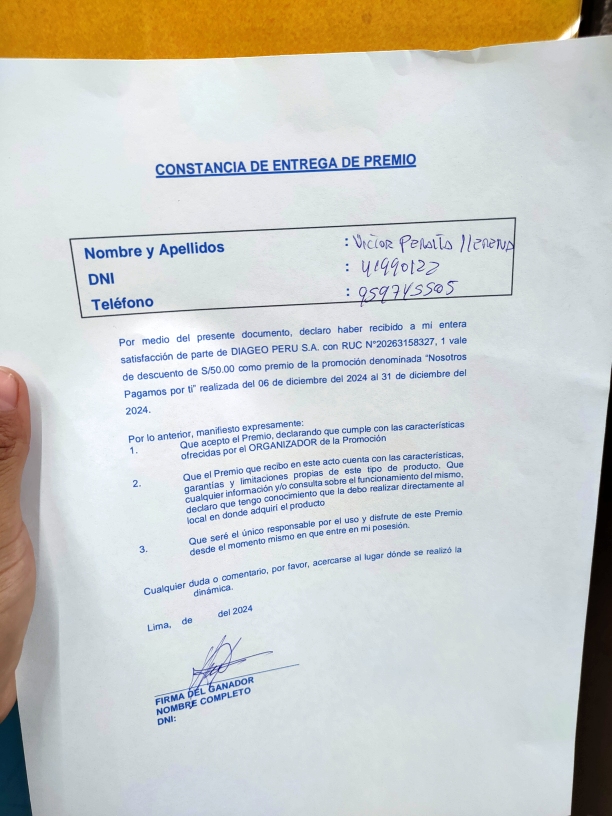 CONSTANCIA DE ENTREGA DE PREMIO
Nombre y Apellidos : Victor Peralta
DNI : 41990122
Teléfono : 959745505
Por medio del presente documento, declaro haber recibido a mi entera
satisfacción de parte de DIAGEO PERU S.A. con RUC N°20263158327, 1 vale
de descuento de S/50.00 como premio de la promoción denominada “Nosotros
Pagamos por ti” realizada del 06 de diciembre del 2024 al 31 de diciembre del
2024.
Por lo anterior, manifiesto expresamente:
1. Que acepto el Premio, declarando que cumple con las características
ofrecidas por el ORGANIZADOR de la Promoción
2. Que el Premio que recibo en este acto cuenta con las características,
garantías y limitaciones propias de este tipo de producto. Que
cualquier información y/o consulta sobre el funcionamiento del mismo,
declaro que tengo conocimiento que la debo realizar directamente al
local en donde adquirí el producto
3. Que seré el único responsable por el uso y disfrute de este Premio
desde el momento mismo en que entre en mi posesión.
Cualquier duda o comentario, por favor, acercarse al lugar dónde se realizó la
dinámica.
Lima, de del 2024
FIRMA DEL GANADOR
NOMBRE COMPLETO
DNI: